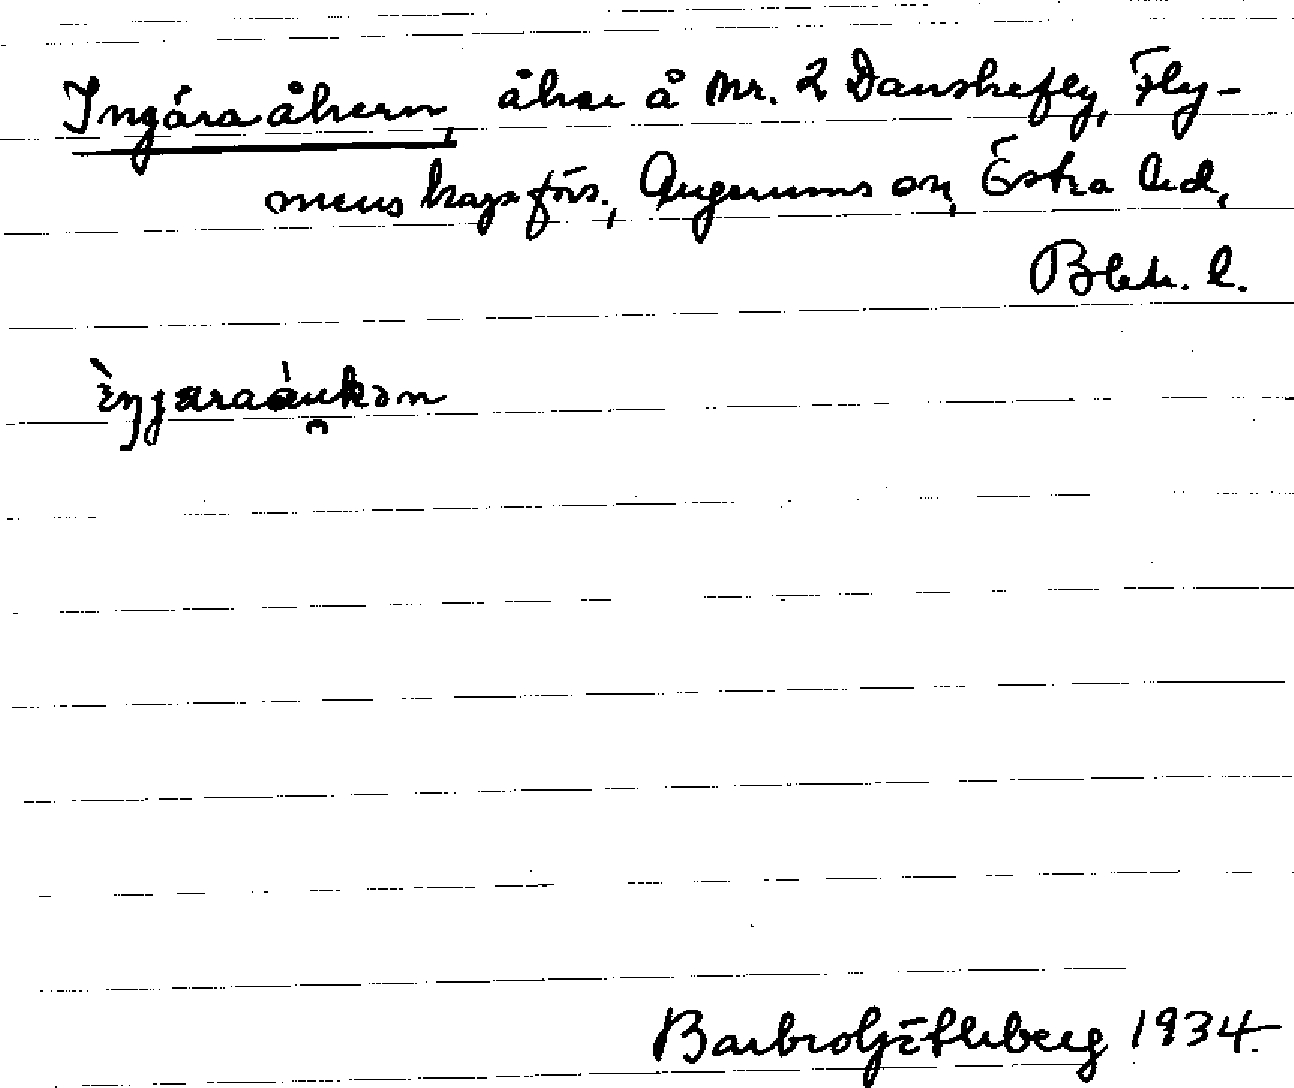 Ingára åkern, åker å Nr. 2 Danskefly, Fly-
mens hags förs., Augerums sn, Östra hd,
Blek. l.
èŋjəraàu̯kən
Barbro Götleberg 1934.